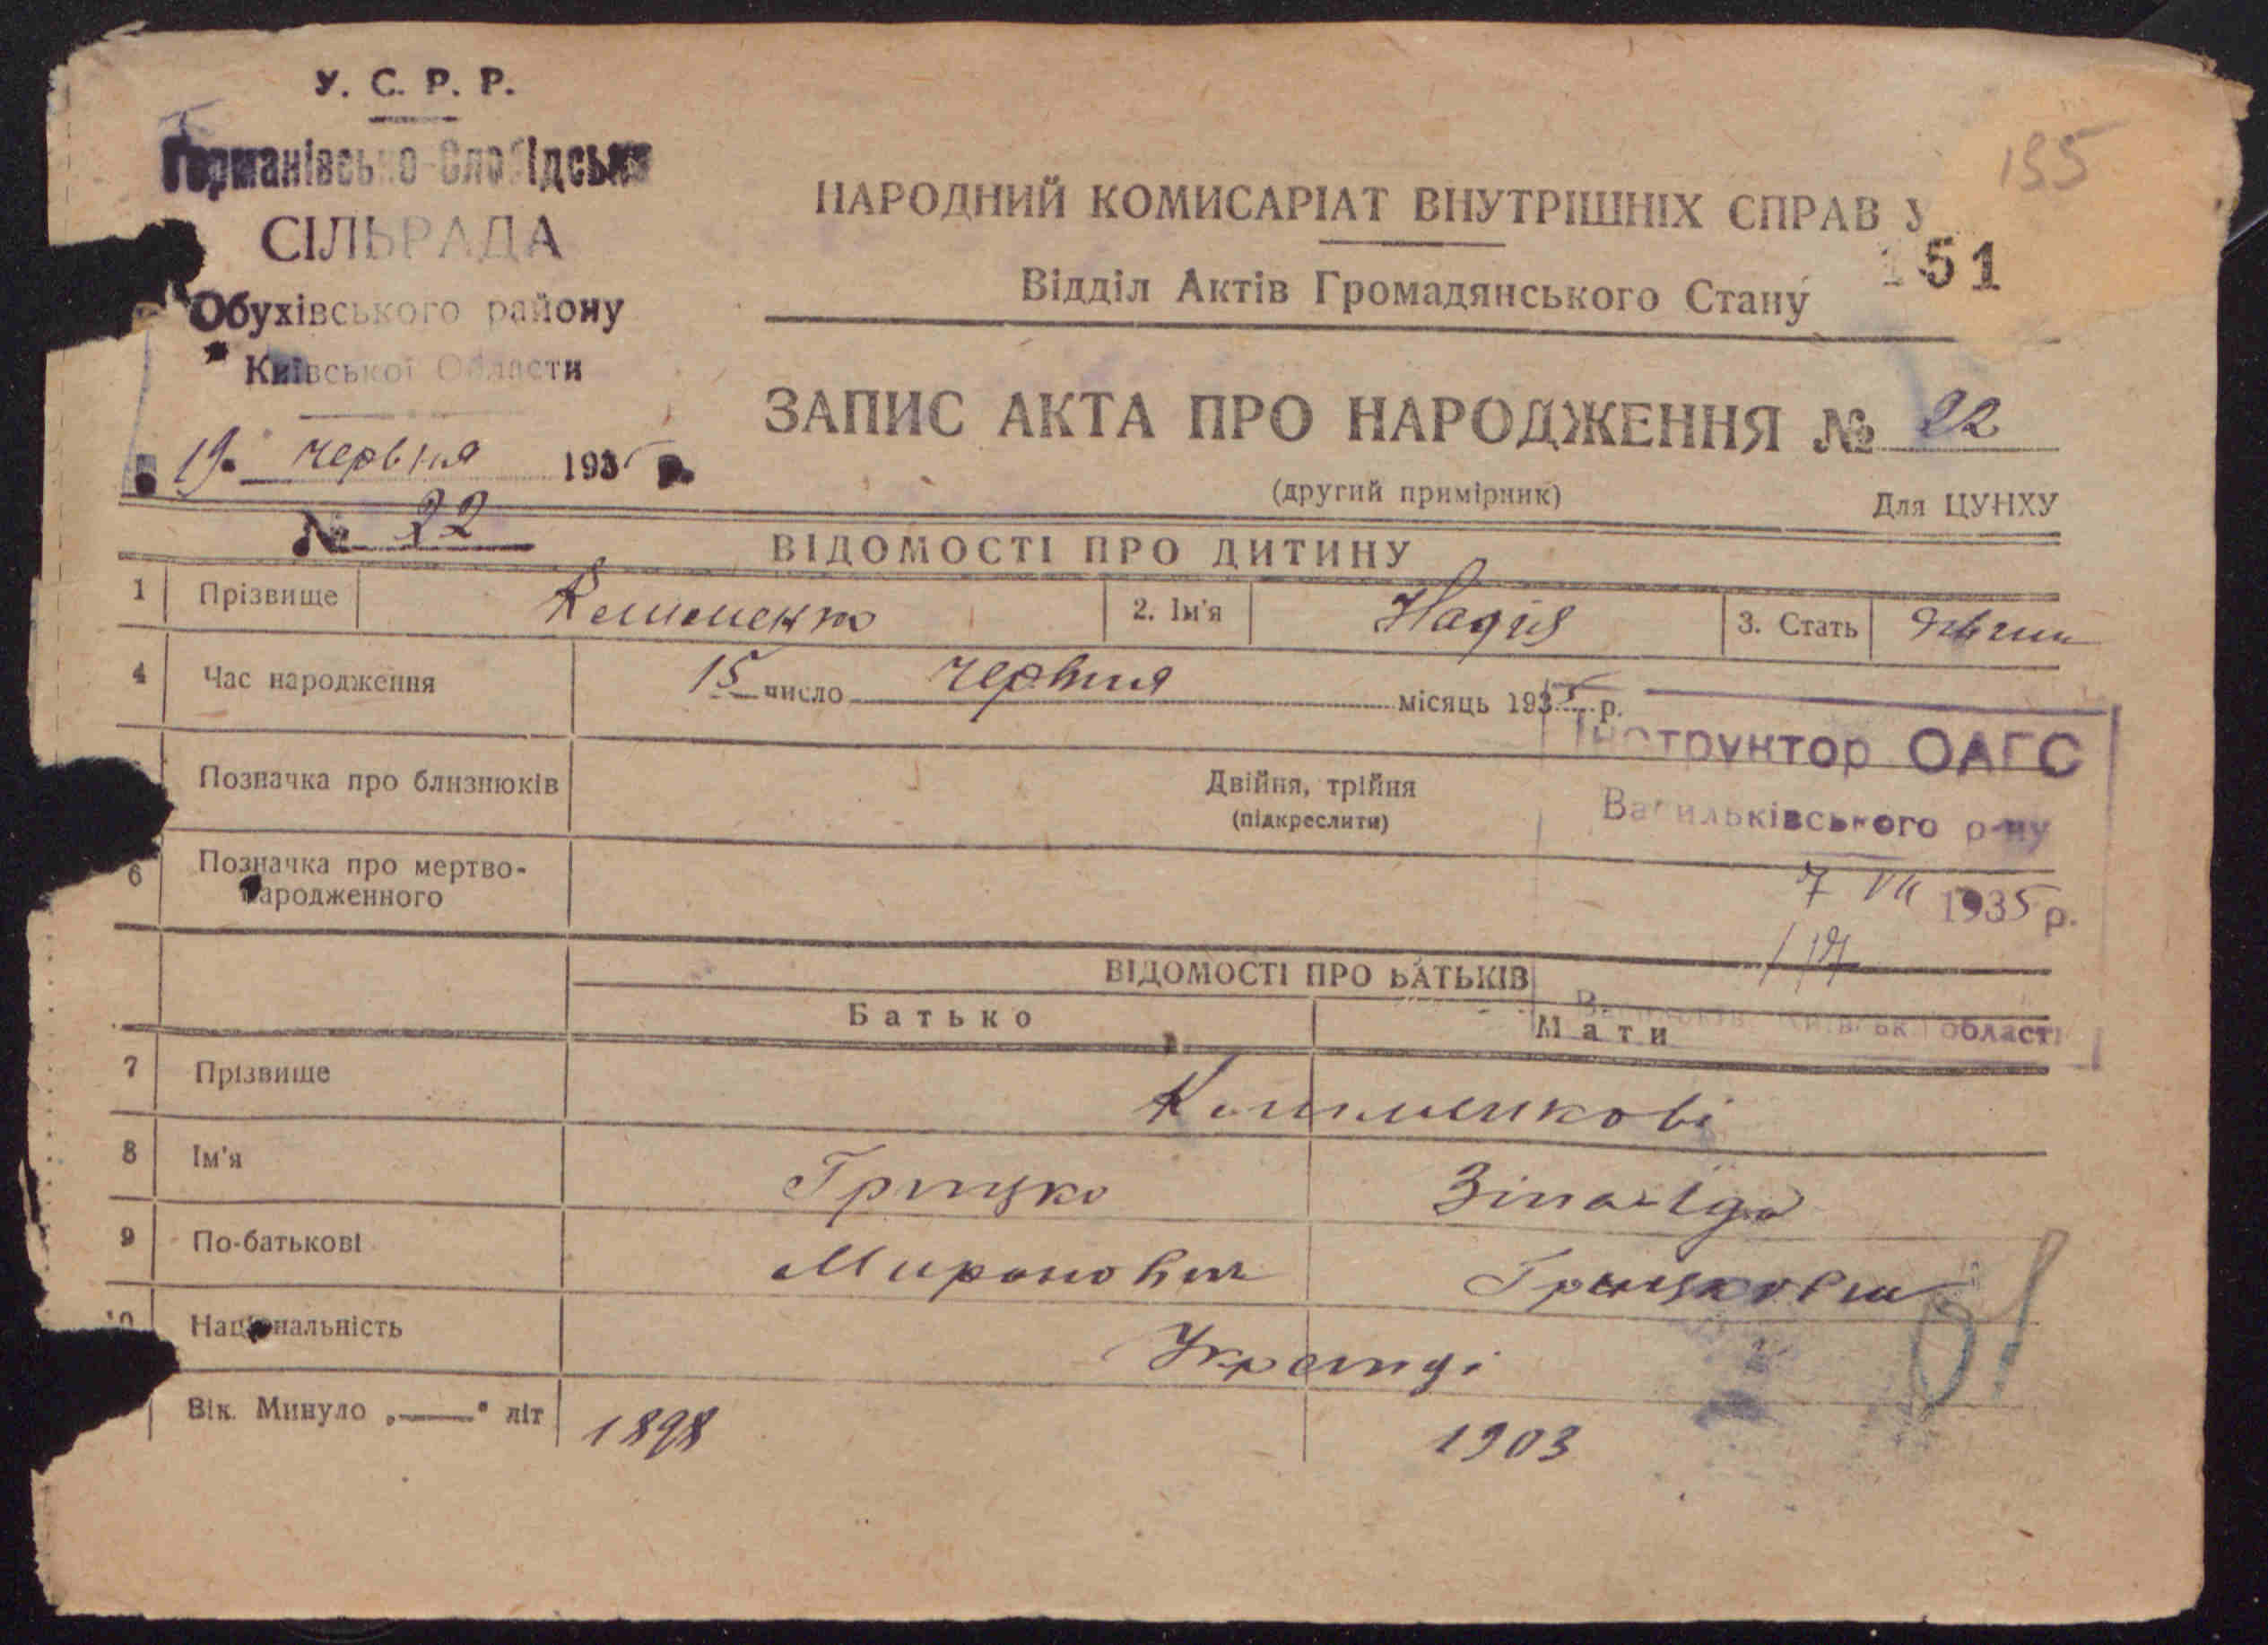 У. С. Р. Р.
Германівсько-Слобідська
СІЛЬРАДА
Обухівського району
Київської Области
19 червня 1935 р.
№ 22
155
НАРОДНИЙ КОМИСАРІАТ ВНУТРІШНІХ СПРАВ У
151
Відділ Актів Громадянського Стану
ЗАПИС АКТА ПРО НАРОДЖЕННЯ № 22
(другий примірник)
Для ЦУНХУ
ВІДОМОСТІ ПРО ДИТИНУ
1 Прізвище 2. Ім'я Надія 3. Стать
4 Час народження 15 число червня місяць 1935 р.
Інструктор ОАГС
Васильківського р-ну
7 VII 1935 р.
Позначка про близнюків Двійня, трійня
(підкреслити)
6 Позначка про мертво-
народженного
ВІДОМОСТІ ПРО БАТЬКІВ
Васильків Київськ області
Батько Мати
7 Прізвище
8 Ім'я Грицько Зінаїда
9 По-батькові Миронович Грицьковна
10 Національність Українці
Вік. Минуло „——" літ 1898 1903